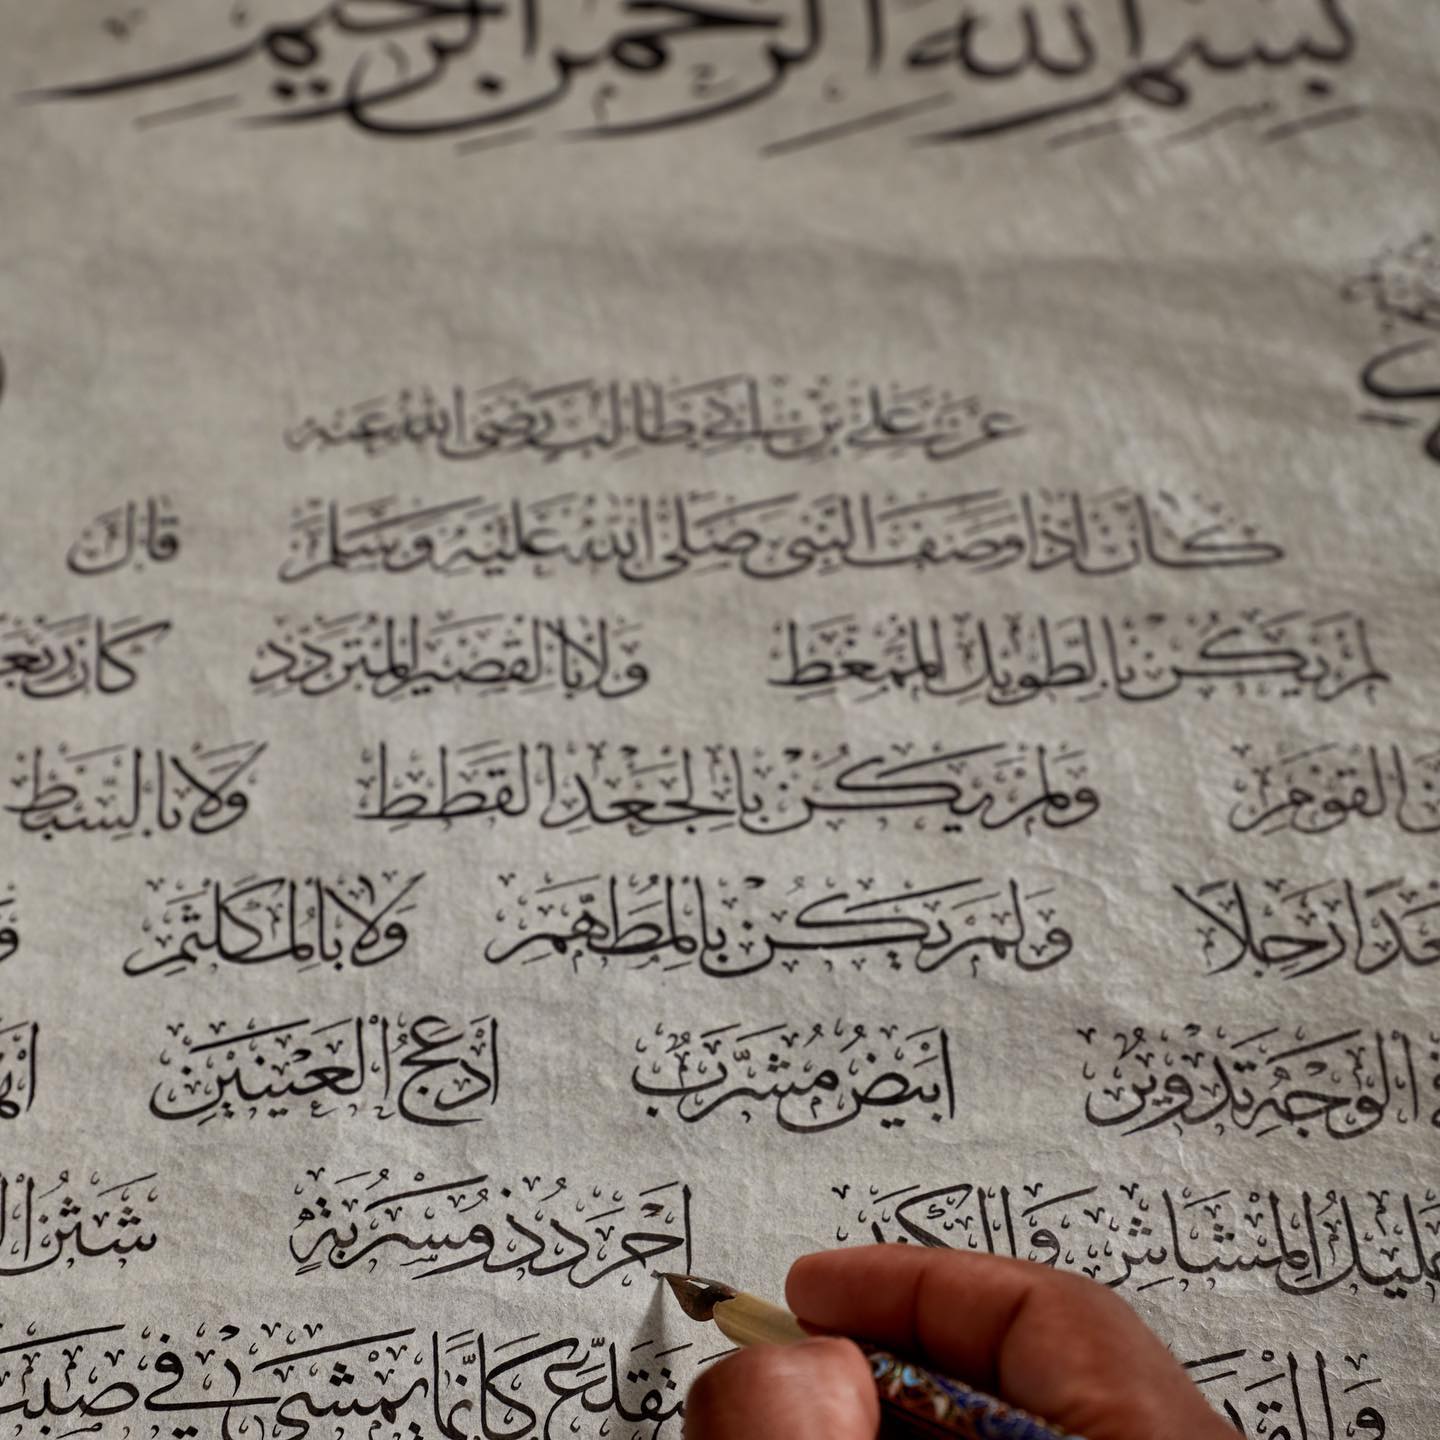 بسم الله الرحمن الرحيم
عن علي بن ابي طالب رضي الله عنه
كان اذا وصف النبي صلى الله عليه وسلم قال
لم يكن بالطويل الممغط ولا بالقصير المتردد كان ربعة
القوم ولم يكن بالجعد القطط ولا بالسبط
جعدا رجلا ولم يكن بالمطهم ولا بالمكلثم
الوجه تدوير ابيض مشرب ادعج العينين
جليل المشاش والكتد اجرد ذو مسربة شثن
تقلع كانما يمشي في صبب